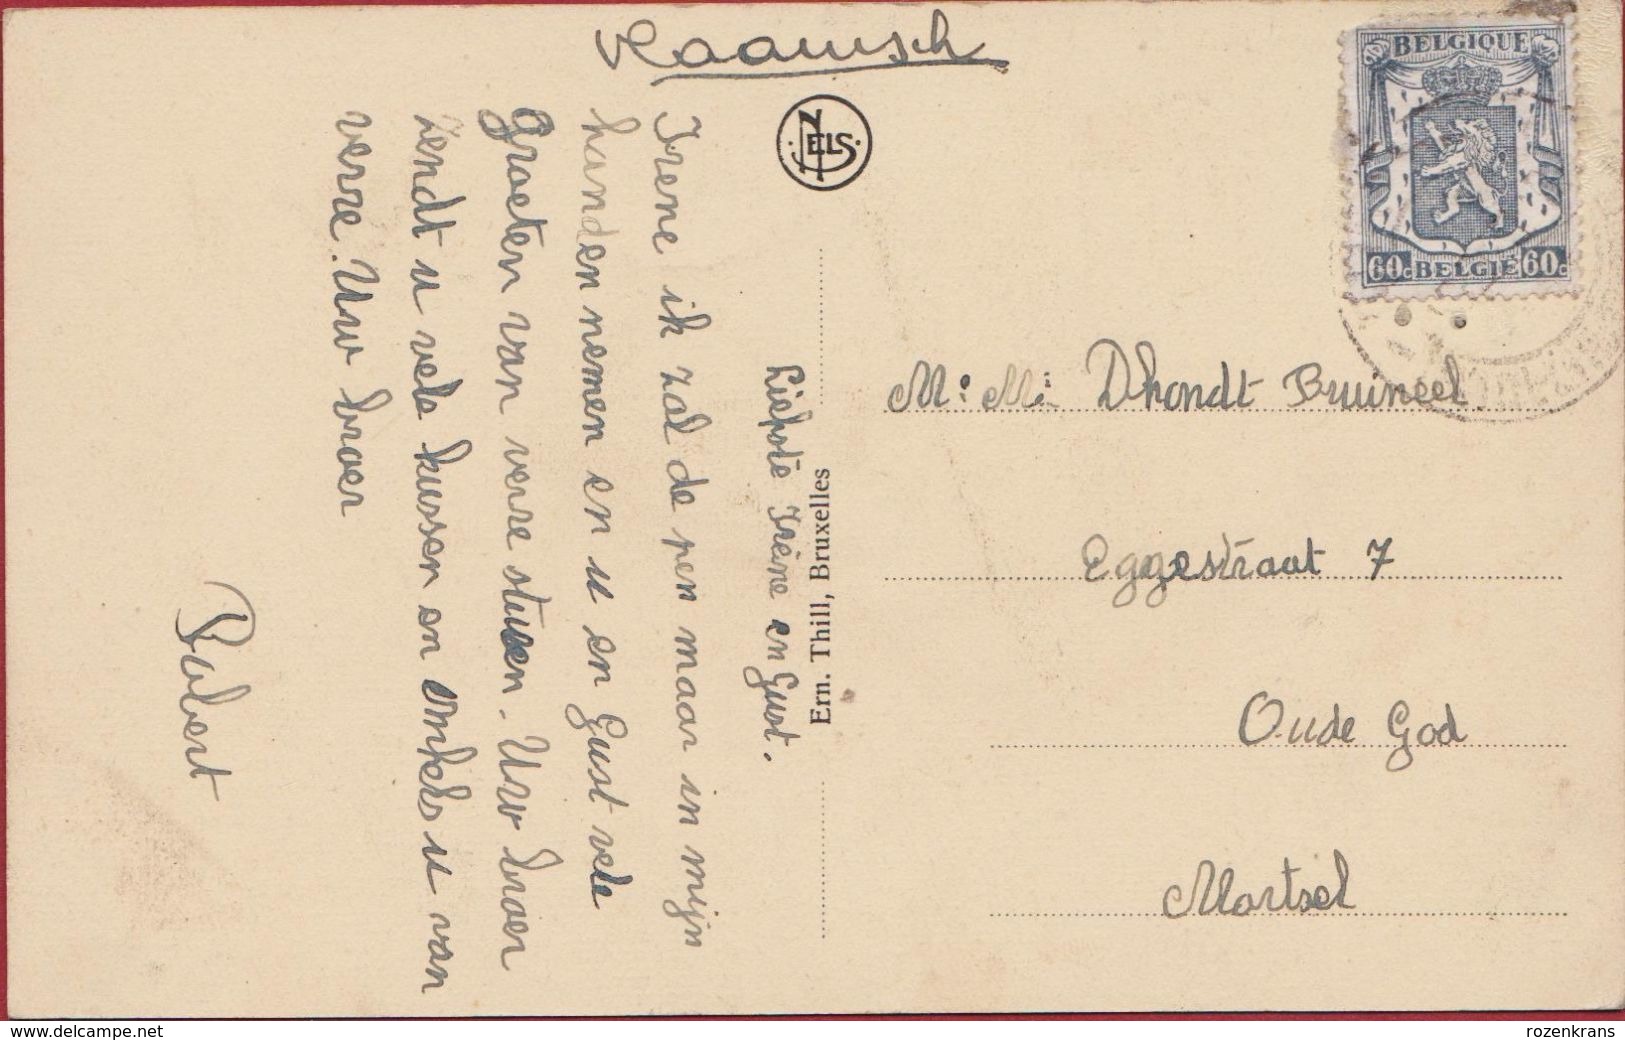 Vlaamsch
BELGIQUE
60c BELGIË 60c
NELS
Liefste Irène en Gust.
Irene ik zal de pen maar in mijn
handen nemen en u en Gust vele
Groeten van verre sturen. Uw broer
zendt u vele kussen en omhels u van
verre. Uw broer
Robert
Ern. Thill, Bruxelles
M. M. Dhondt Bruineel
Eggestraat 7
Oude God
Mortsel
www.delcampe.net
rozenkrans